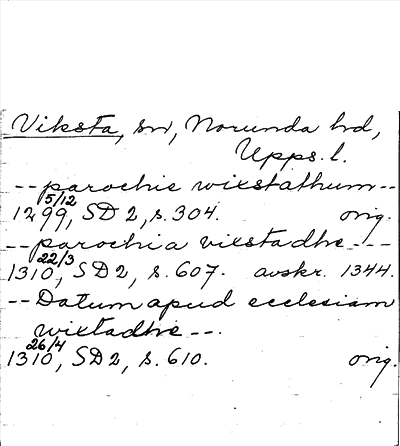 Viksta, sn, Norunda hd,
Upps. l.
-- parochie wixstathum --
5/12
1299, SD 2, s. 304. orig.
-- parochia vixstadhe ---
22/3
1310, SD 2, s. 607. avskr. 1344.
-- Datum apud ecclesiam
wixtadhe --.
26/4
1310, SD 2, s. 610. orig.